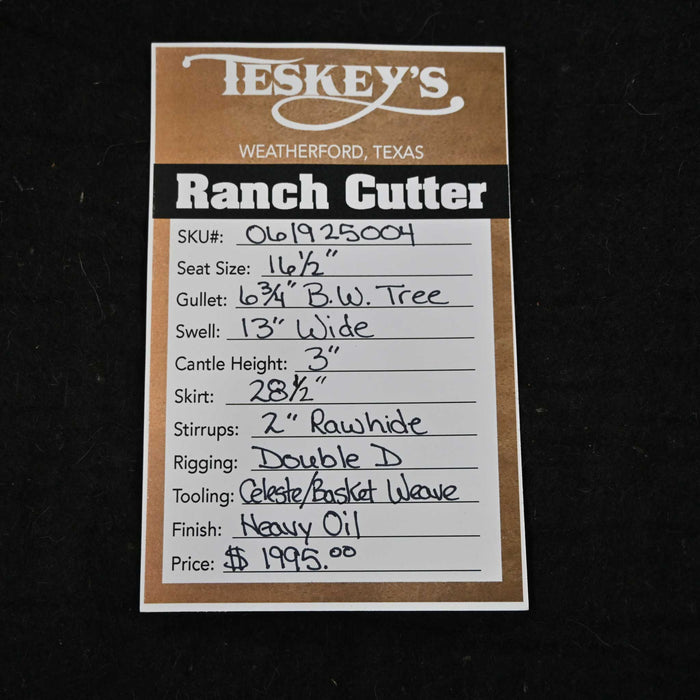 TESKEY'S
WEATHERFORD, TEXAS
Ranch Cutter
SKU#: 061925004
Seat Size: 16½"
Gullet: 6¾" B.W. Tree
Swell: 13" Wide
Cantle Height: 3"
Skirt: 28½"
Stirrups: 2" Rawhide
Rigging: Double D
Tooling: Celeste/Basket Weave
Finish: Heavy Oil
Price: $ 1995.00